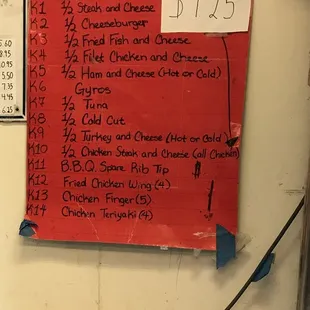 $ 1 25
K1 1/2 Steak and Cheese
K2 1/2 Cheeseburger
K3 1/2 Fried Fish and Cheese
K4 1/2 Filet Chicken and Cheese
K5 1/2 Ham and Cheese (Hot or Cold)
K6 Gyros
K7 1/2 Tuna
K8 1/2 Cold Cut
K9 1/2 Turkey and Cheese (Hot or Cold)
K10 1/2 Chicken Steak and Cheese (all Chicken)
K11 B.B.Q. Spare Rib Tip
K12 Fried Chicken Wing (4)
K13 Chicken Finger (5)
K14 Chicken Teriyaki (4)
5.50
7.35
4.45
6.25